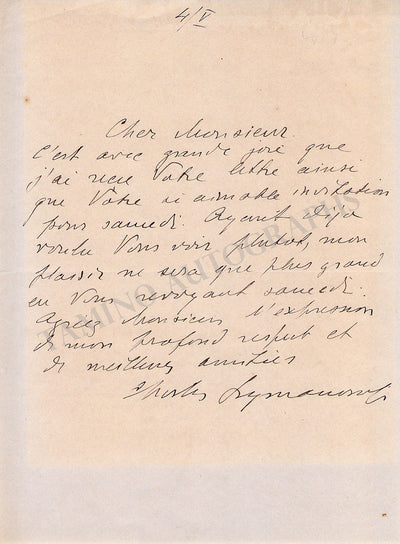 4/V
Cher Monsieur.
C'est avec grande joie que
j'ai reçu Votre lettre ainsi
que Vôtre si aimable invitation
pour samedi. Ayant déjà
voulu Vous voir plutot, mon
plaisir ne sera que plus grand
en Vous revoyant samedi.
Agréez Monsieur l'expression
de mon profond respect et
de meilleurs amitiés
Szymanowski
TAMINO AUTOGRAPHS